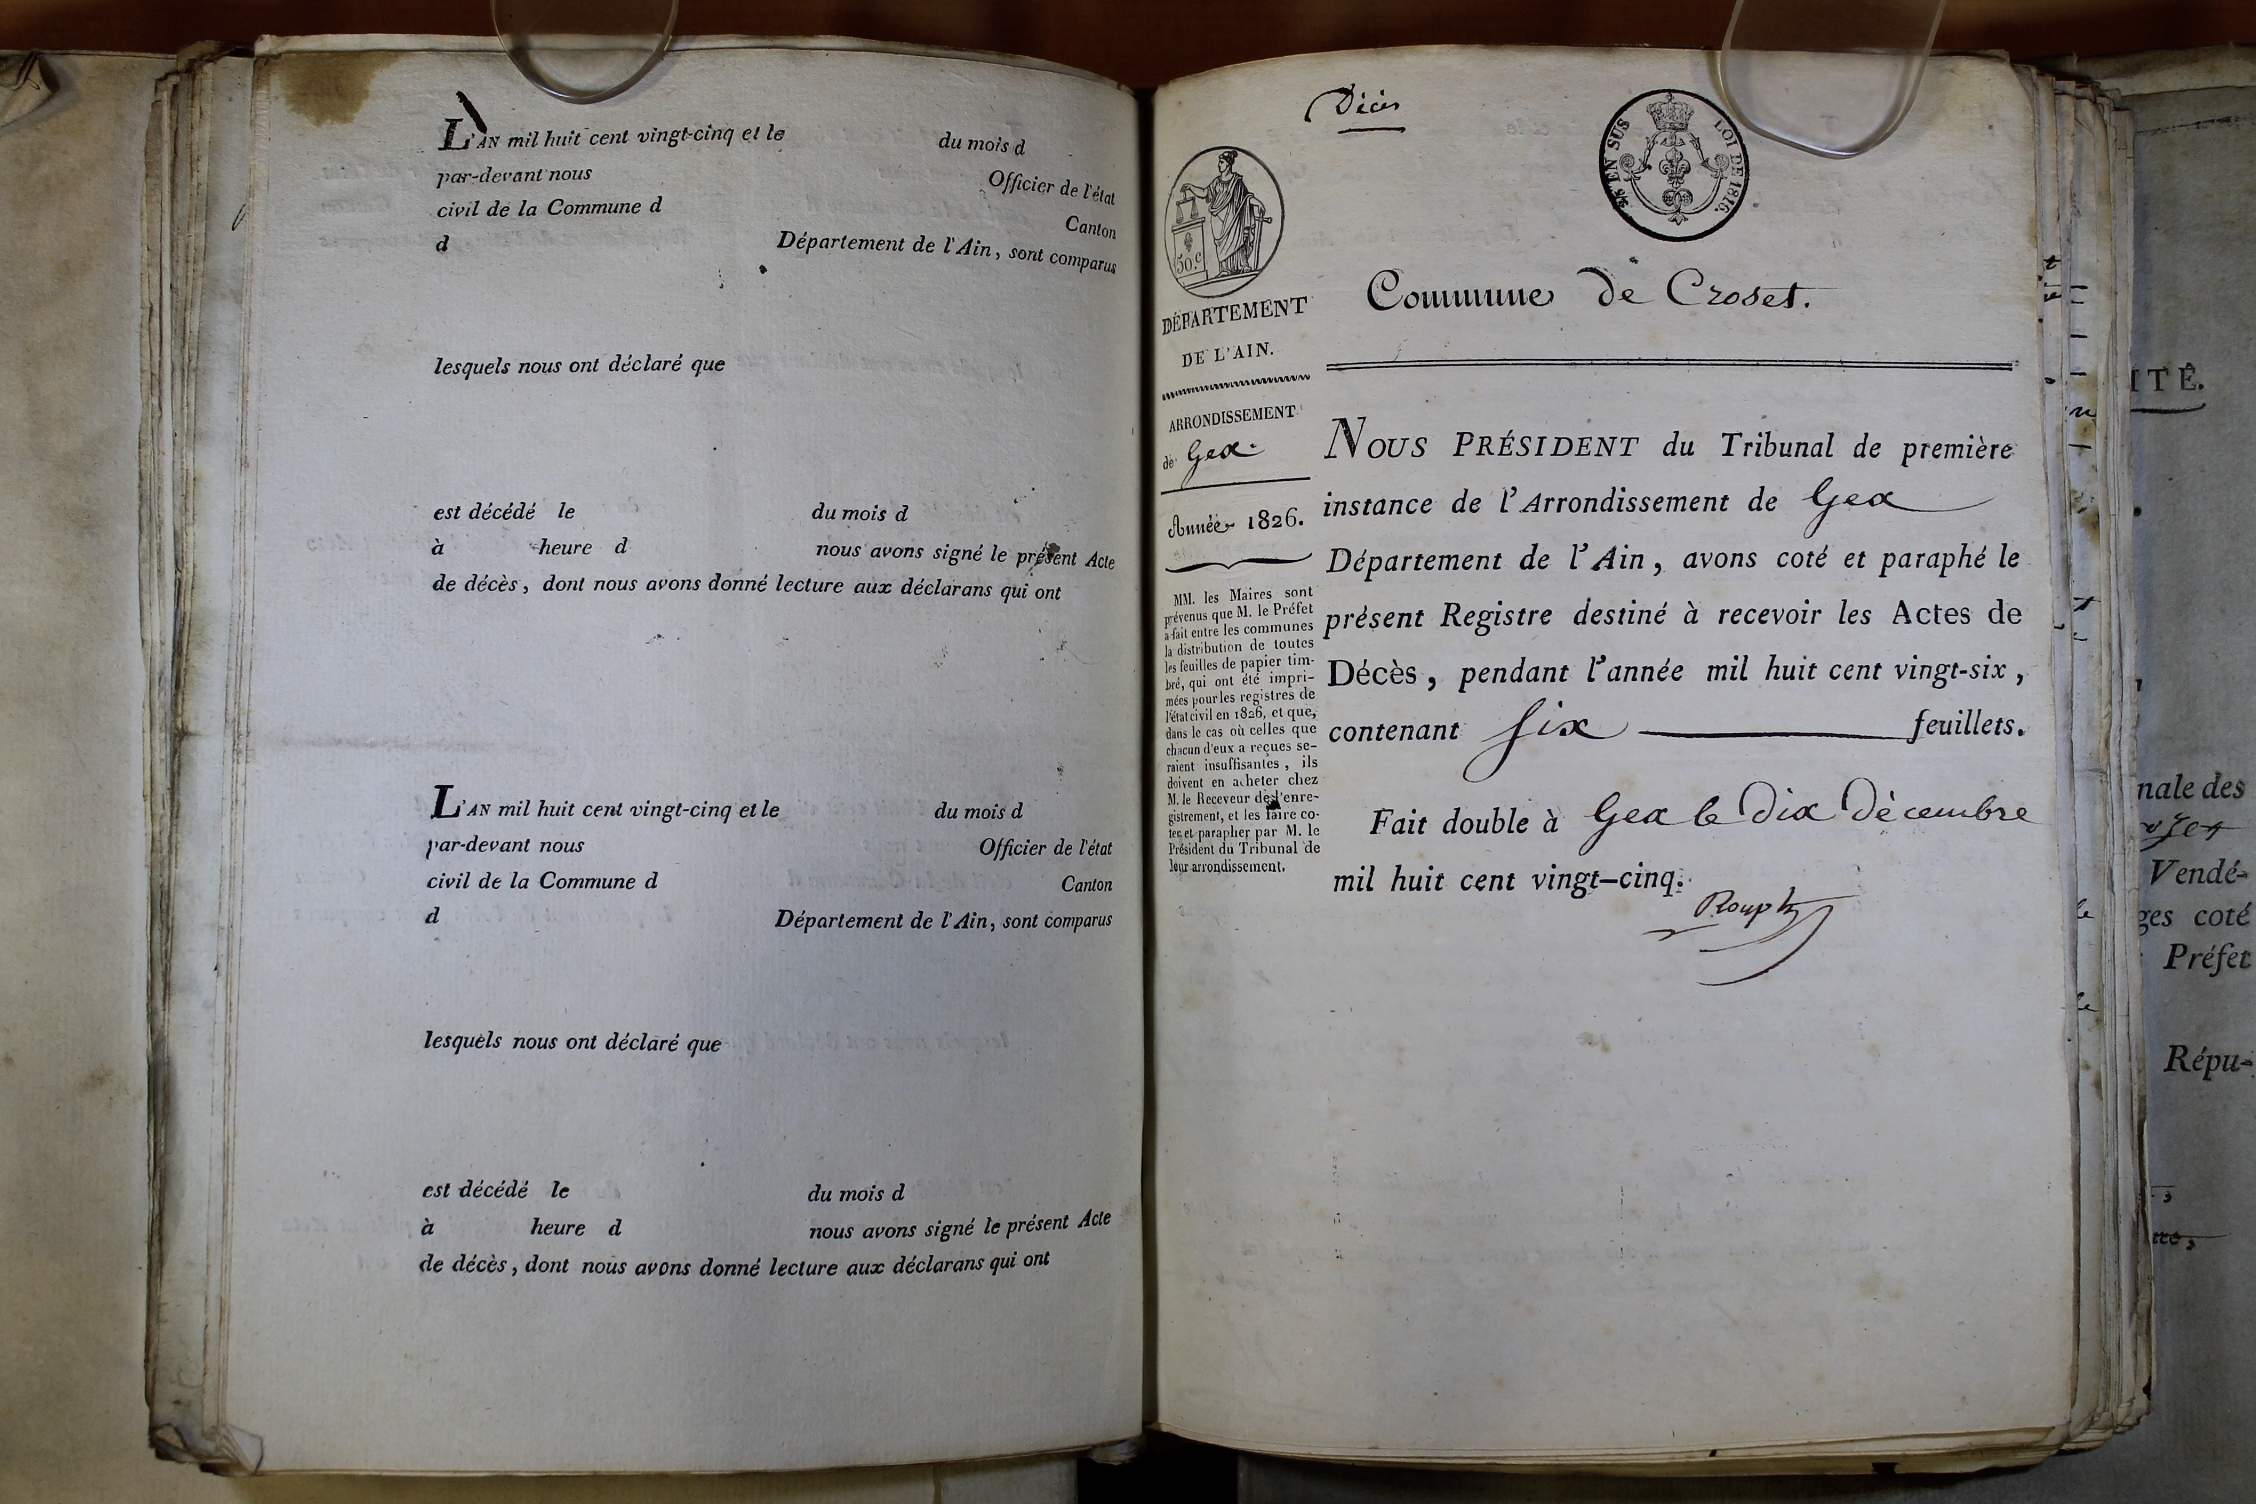 L'AN mil huit cent vingt-cinq et le du mois d
par-devant nous Officier de l'état
civil de la Commune d Canton
d Département de l'Ain, sont comparus
lesquels nous ont déclaré que
est décédé le du mois d
à heure d nous avons signé le présent Acte
de décès, dont nous avons donné lecture aux déclarans qui ont
L'AN mil huit cent vingt-cinq et le du mois d
par-devant nous Officier de l'état
civil de la Commune d Canton
d Département de l'Ain, sont comparus
lesquels nous ont déclaré que
est décédé le du mois d
à heure d nous avons signé le présent Acte
de décès, dont nous avons donné lecture aux déclarans qui ont
Décès
EN SUS LOI DE 1816.
50.c
DÉPARTEMENT
DE L'AIN.
ARRONDISSEMENT
de Gex.
Année 1826.
MM. les Maires sont
prévenus que M. le Préfet
a fait entre les communes
la distribution de toutes
les feuilles de papier tim-
bré, qui ont été impri-
mées pour les registres de
l'état civil en 1826, et que,
dans le cas où celles que
chacun d'eux a reçues se-
raient insuffisantes, ils
doivent en acheter chez
M. le Receveur de l'enre-
gistrement, et les faire co-
ter et parapher par M. le
Président du Tribunal de
leur arrondissement.
Commune de Croset.
NOUS PRÉSIDENT du Tribunal de première
instance de l'Arrondissement de Gex
Département de l'Ain, avons coté et paraphé le
présent Registre destiné à recevoir les Actes de
Décès, pendant l'année mil huit cent vingt-six,
contenant six feuillets.
Fait double à Gex le dix décembre
mil huit cent vingt-cinq.
ITÉ.
nale des
Vendé-
ges coté
Préfet
Répu-